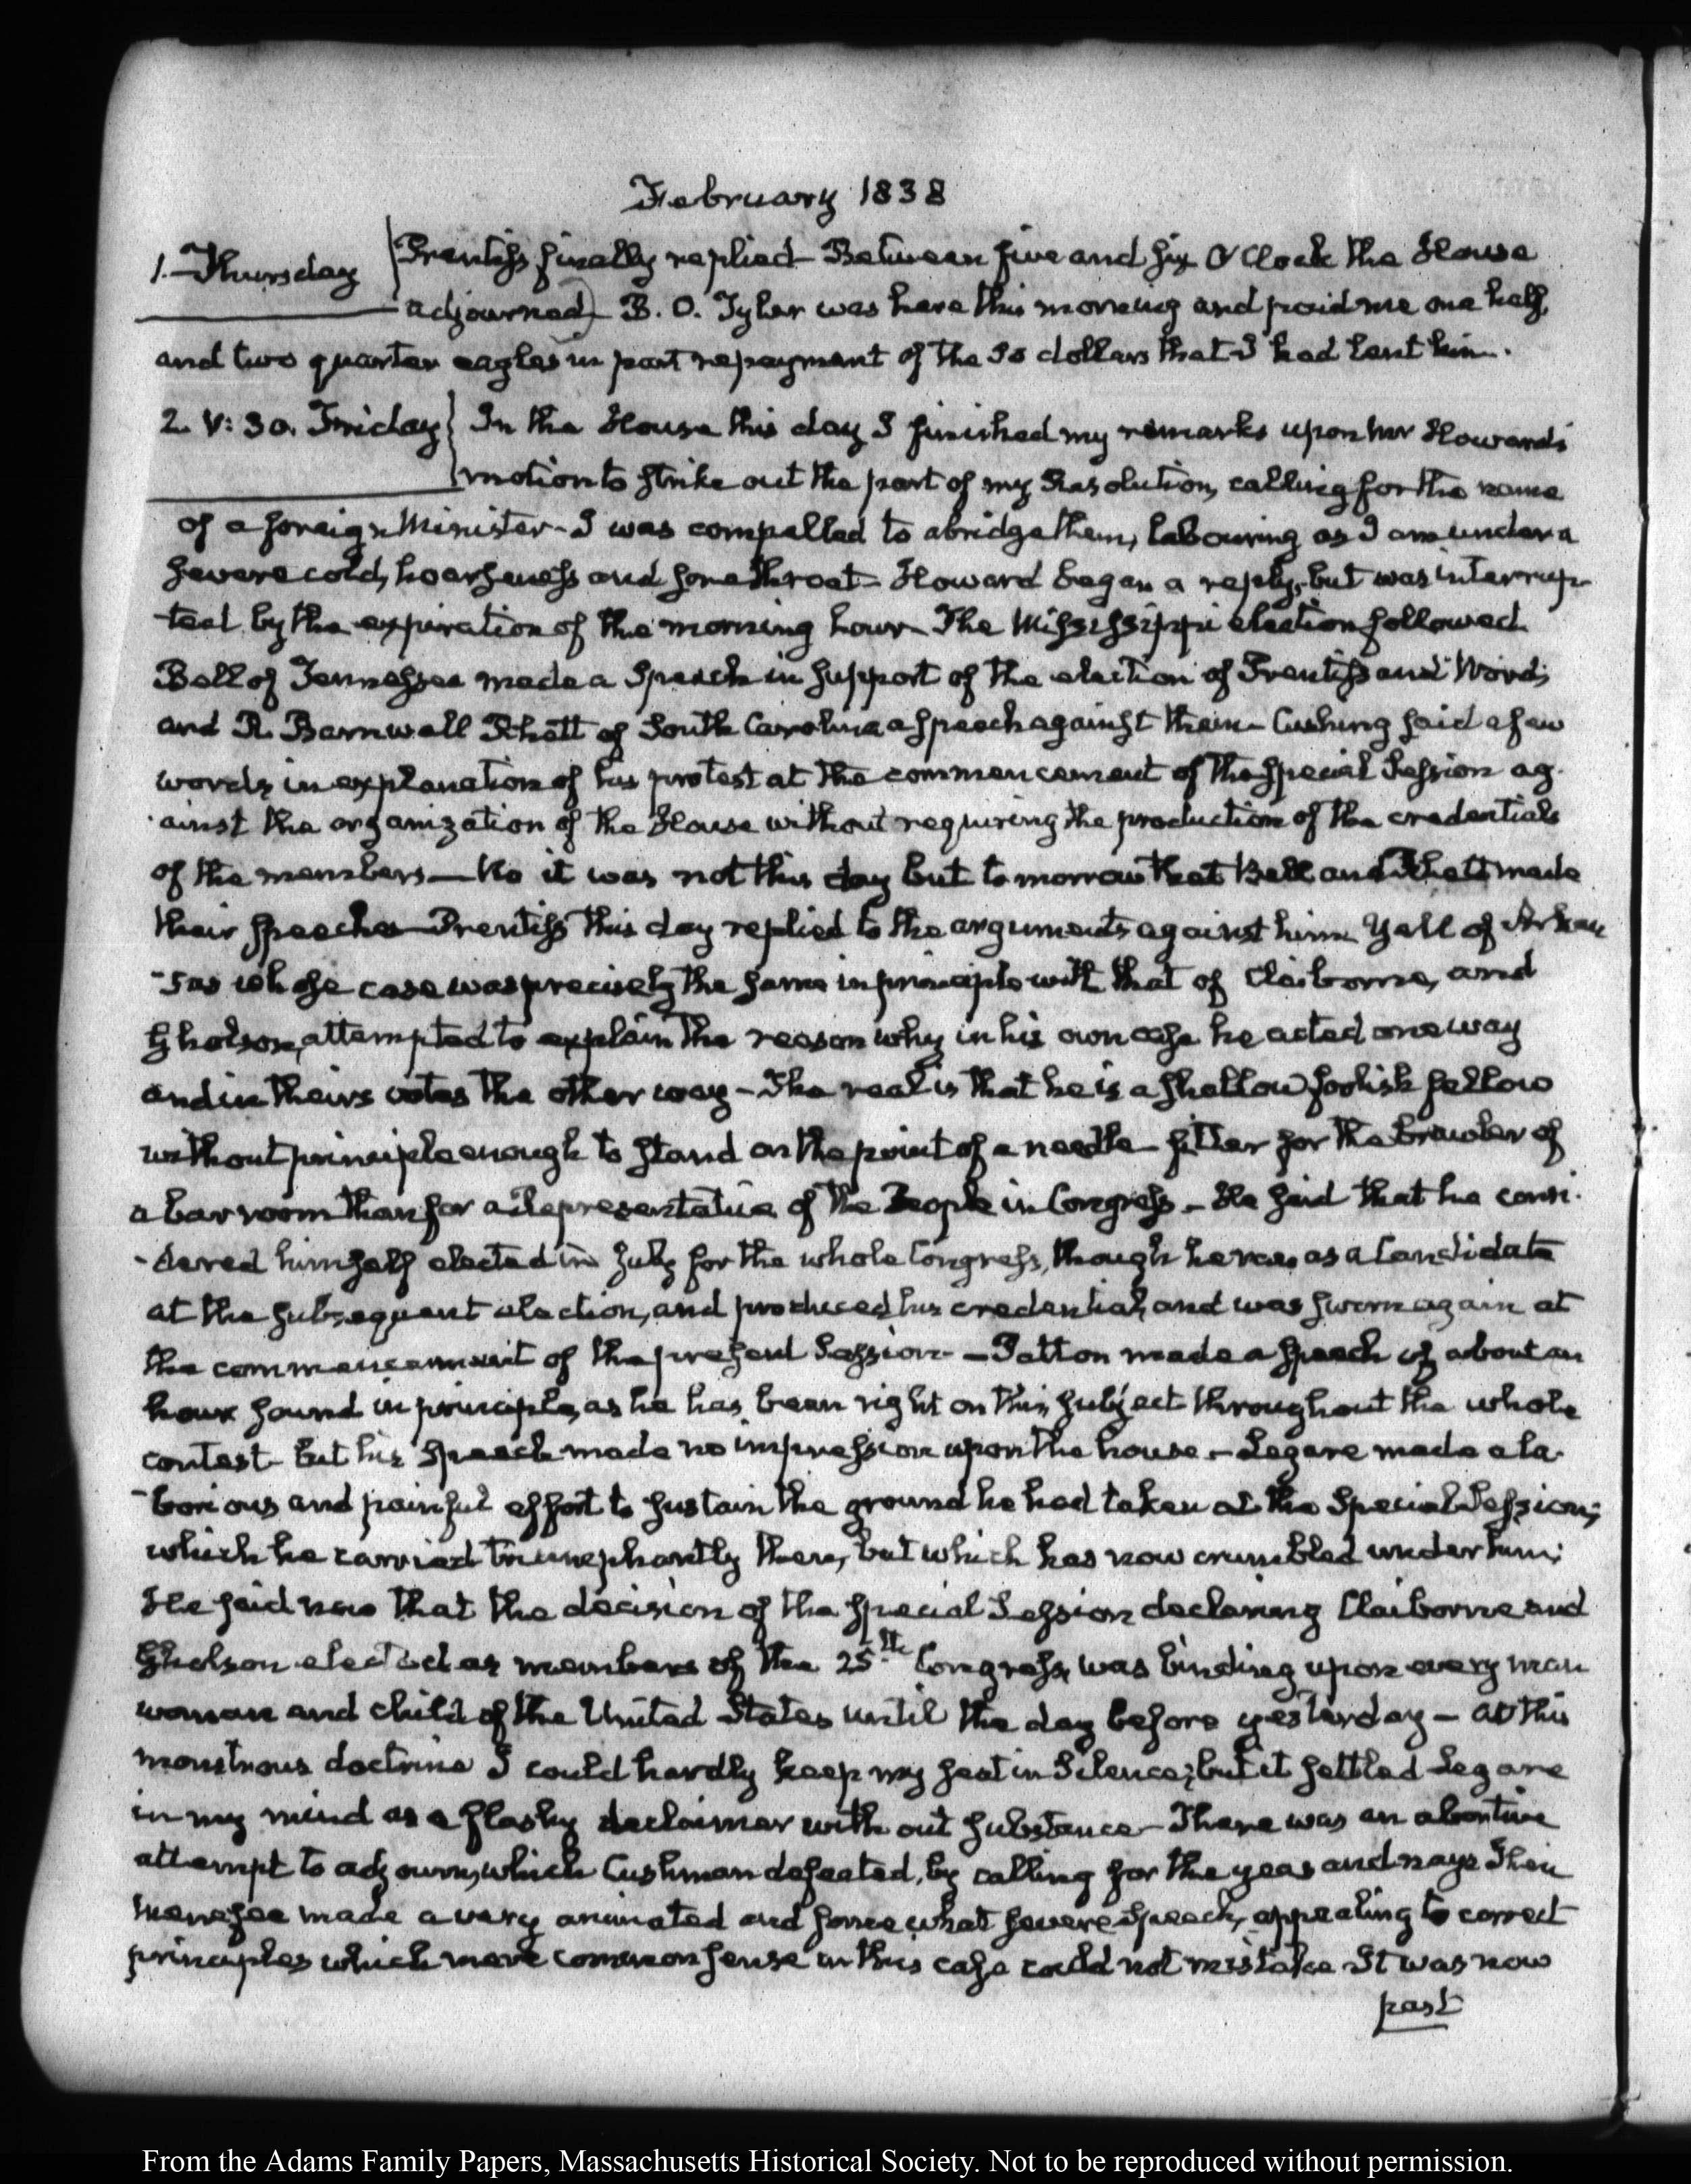 February 1838
1. Thursday Prentiss finally replied— Between five and six O'Clock the House
adjourned) B. O. Tyler was here this morning and paid me one half,
and two quarter eagles in part repayment of the 30 dollars that I had lent him.
2. V: 30. Friday In the House this day I finished my remarks upon Mr Howard's
motion to strike out the part of my Resolution, calling for the name
of a foreign Minister— I was compelled to abridge them, labouring as I am under a
severe cold, hoarseness and sore throat— Howard began a reply, but was interrup-
-ted by the expiration of the morning hour— The Mississippi election followed
Bell of Tennessee made a Speech in support of the election of Prentiss and Word;
and R. Barnwell Rhett of South Carolina a speech against them— Cushing said a few
words in explanation of his protest at the commencement of the special Session ag-
-ainst the organization of the House without requiring the production of the credentials
of the members— No it was not this day but to morrow that Bell and Rhett made
their speeches— Prentiss this day replied to the arguments against him Yell of Arkan
-sas whose case was precisely the same in principle with that of Claiborne, and
Gholson, attempted to explain the reason why in his own case he acted one way
and in theirs votes the other way— The real is that he is a shallow foolish fellow
without principle enough to stand on the point of a needle— fitter for the brawler of
a bar room than for a Representative of the People in Congress— He said that he consi-
-dered himself elected in July for the whole Congress, though he was as a Candidate
at the subsequent election, and produced his credential, and was sworn again at
the commencement of the present Session— Patton made a speech of about an
hour sound in principle, as he has been right on this subject throughout the whole
contest— But his Speech made no impression upon the house— Legare made a la-
-borious and painful effort to sustain the ground he had taken at the Special Session;
which he carried triumphantly then, but which has now crumbled under him;
He said now that the decision of the special Session declaring Claiborne and
Gholson elected as members of the 25th Congress, was binding upon every man
woman and child of the United States until the day before yesterday— At this
monstrous doctrine I could hardly keep my seat in Silence; but it settled Legare
in my mind as a flashy declaimer without substance— There was an abortive
attempt to adjourn, which Cushman defeated, by calling for the yeas and nays Then
Menefee made a very animated and somewhat severe speech, appealing to correct
principles which mere common sense in this case could not mistake It was now
past
From the Adams Family Papers, Massachusetts Historical Society. Not to be reproduced without permission.